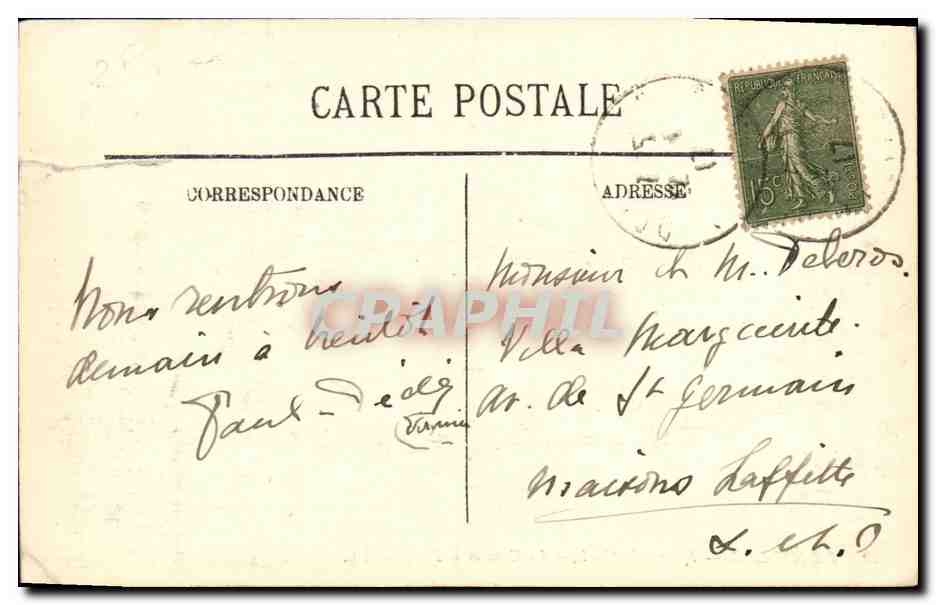 CARTE POSTALE
CORRESPONDANCE
ADRESSE
REPUBLIQUE FRANCAISE
15c
POSTES
Nous rentrons
demain à bientôt
Paul - Dédé
Monsieur et M.. Deberos.
Villa Marguerite.
av. de St Germain
Maisons Laffitte
S. et O
CRAPHIL